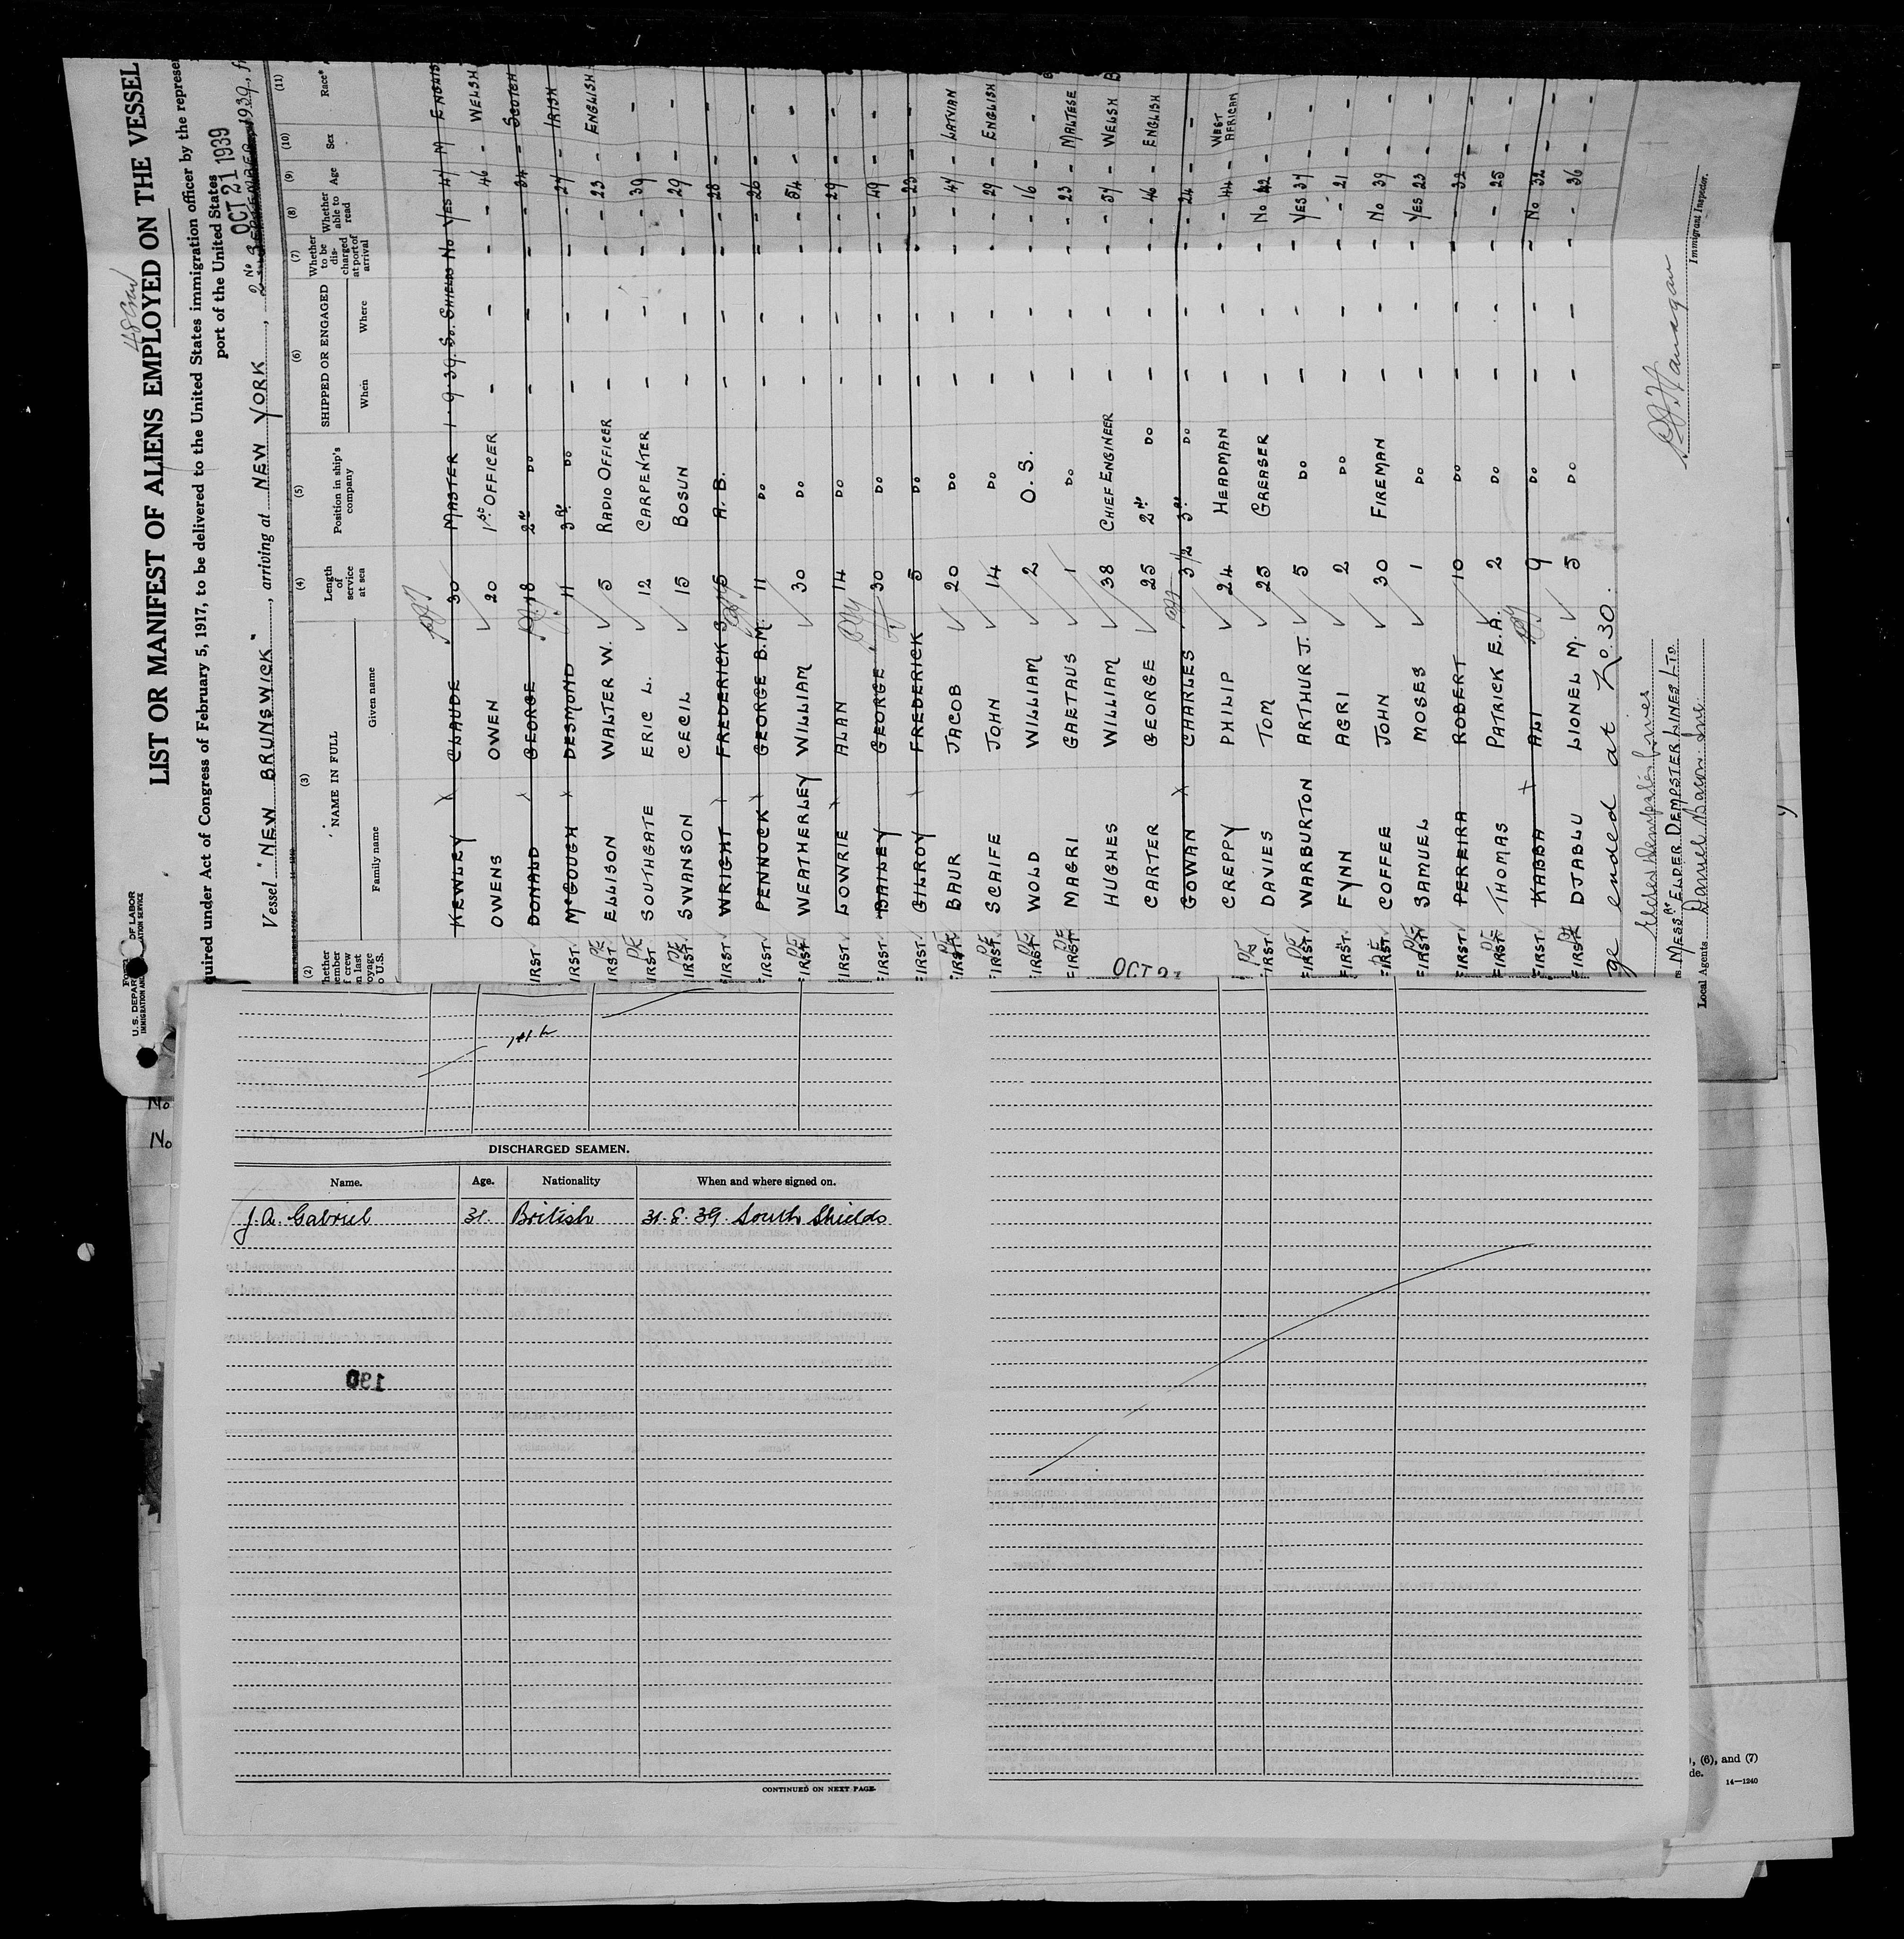 48 Crew
LIST OR MANIFEST OF ALIENS EMPLOYED ON THE VESSEL
U.S. DEPAR DF LABOR
IMMIGRATION AND ATION SERVICE
quired under Act of Congress of February 5, 1917, to be delivered to the United States immigration officer by the represen
port of the United States
OCT 21 1939
Vessel "NEW BRUNSWICK", arriving at NEW YORK, 2ND SEPTEMBER 1939, fr
(2) (3) (4) (5) (6) (7) (8) (9) (10) (11)
hether ember f crew n last oyage o U.S. NAME IN FULL Family name Given name Length of service at sea Position in ship's company SHIPPED OR ENGAGED When Where Whether to be discharged at port of arrival Whether able to read Age Sex Race*
KEWLEY X CLAUDE 30 MASTER 1.9.39. So. SHIELDS No YES 47 M ENGLIS
OWENS OWEN 20 1ST OFFICER - - - - 46 - WELSH
FIRST DONALD GEORGE 18 2ND DO - - - - 34 - SCOTCH
FIRST McGOUGH X DESMOND 11 3RD DO - - - - 24 - IRISH
FIRST ELLISON WALTER W. 5 RADIO OFFICER - - - - 23 - ENGLISH
FIRST SOUTHGATE ERIC L. 12 CARPENTER - - - - 39 - -
FIRST SWANSON CECIL 15 BOSUN - - - - 29 - -
FIRST WRIGHT X FREDERICK S. 5 A.B. - - - - 28 - -
FIRST PENNOCK X GEORGE B.M. 11 DO - - - - 26 - -
FIRST WEATHERLEY WILLIAM 30 DO - - - - 54 - -
FIRST LOWRIE X ALAN 14 DO - - - - 29 - -
FIRST BAILEY GEORGE 30 DO - - - - 49 - -
FIRST GILROY X FREDERICK 5 DO - - - - 23 - -
FIRST BAUR JACOB 20 DO - - - - 47 - LATVIAN
FIRST SCAIFE JOHN 14 DO - - - - 29 - ENGLISH
FIRST WOLD WILLIAM 2 O.S. - - - - 16 - -
FIRST MAGRI GAETAUS 1 DO - - - - 23 - MALTESE
HUGHES WILLIAM 38 CHIEF ENGINEER - - - - 57 - WELSH
OCT 2
CARTER GEORGE 25 2ND DO - - - - 46 - ENGLISH
GOWAN X CHARLES 3 1/2 3RD DO - - - - 24 - -
CREPPY PHILIP 24 HEADMAN - - - - 44 - WEST AFRICAN
FIRST DAVIES TOM 25 GREASER - - - No 42 - -
FIRST WARBURTON ARTHUR J. 5 DO - - - YES 37 - -
FIRST FYNN AGRI 2 DO - - - - 21 - -
FIRST COFFEE JOHN 30 FIREMAN - - - No 39 - -
FIRST SAMUEL MOSES 1 DO - - - YES 23 - -
FIRST PEREIRA ROBERT 10 DO - - - - 32 - -
FIRST THOMAS PATRICK E.A. 2 DO - - - - 25 - -
FIRST KABBA X ALI 9 DO - - - No 32 - -
FIRST DJABLU LIONEL M. 5 DO - - - - 36 - -
ge ended at No. 30.
Elder Dempster Lines
MESSRS ELDER DEMPSTER LINES LTD
Local Agents Daniel Bacon Inc.
Immigrant Inspector.
No
No
DISCHARGED SEAMEN.
Name. Age. Nationality When and where signed on.
J.A. Gabriel 31. British 31.8.39. South Shields
190
CONTINUED ON NEXT PAGE.
, (6), and (7)
de.
14—1240